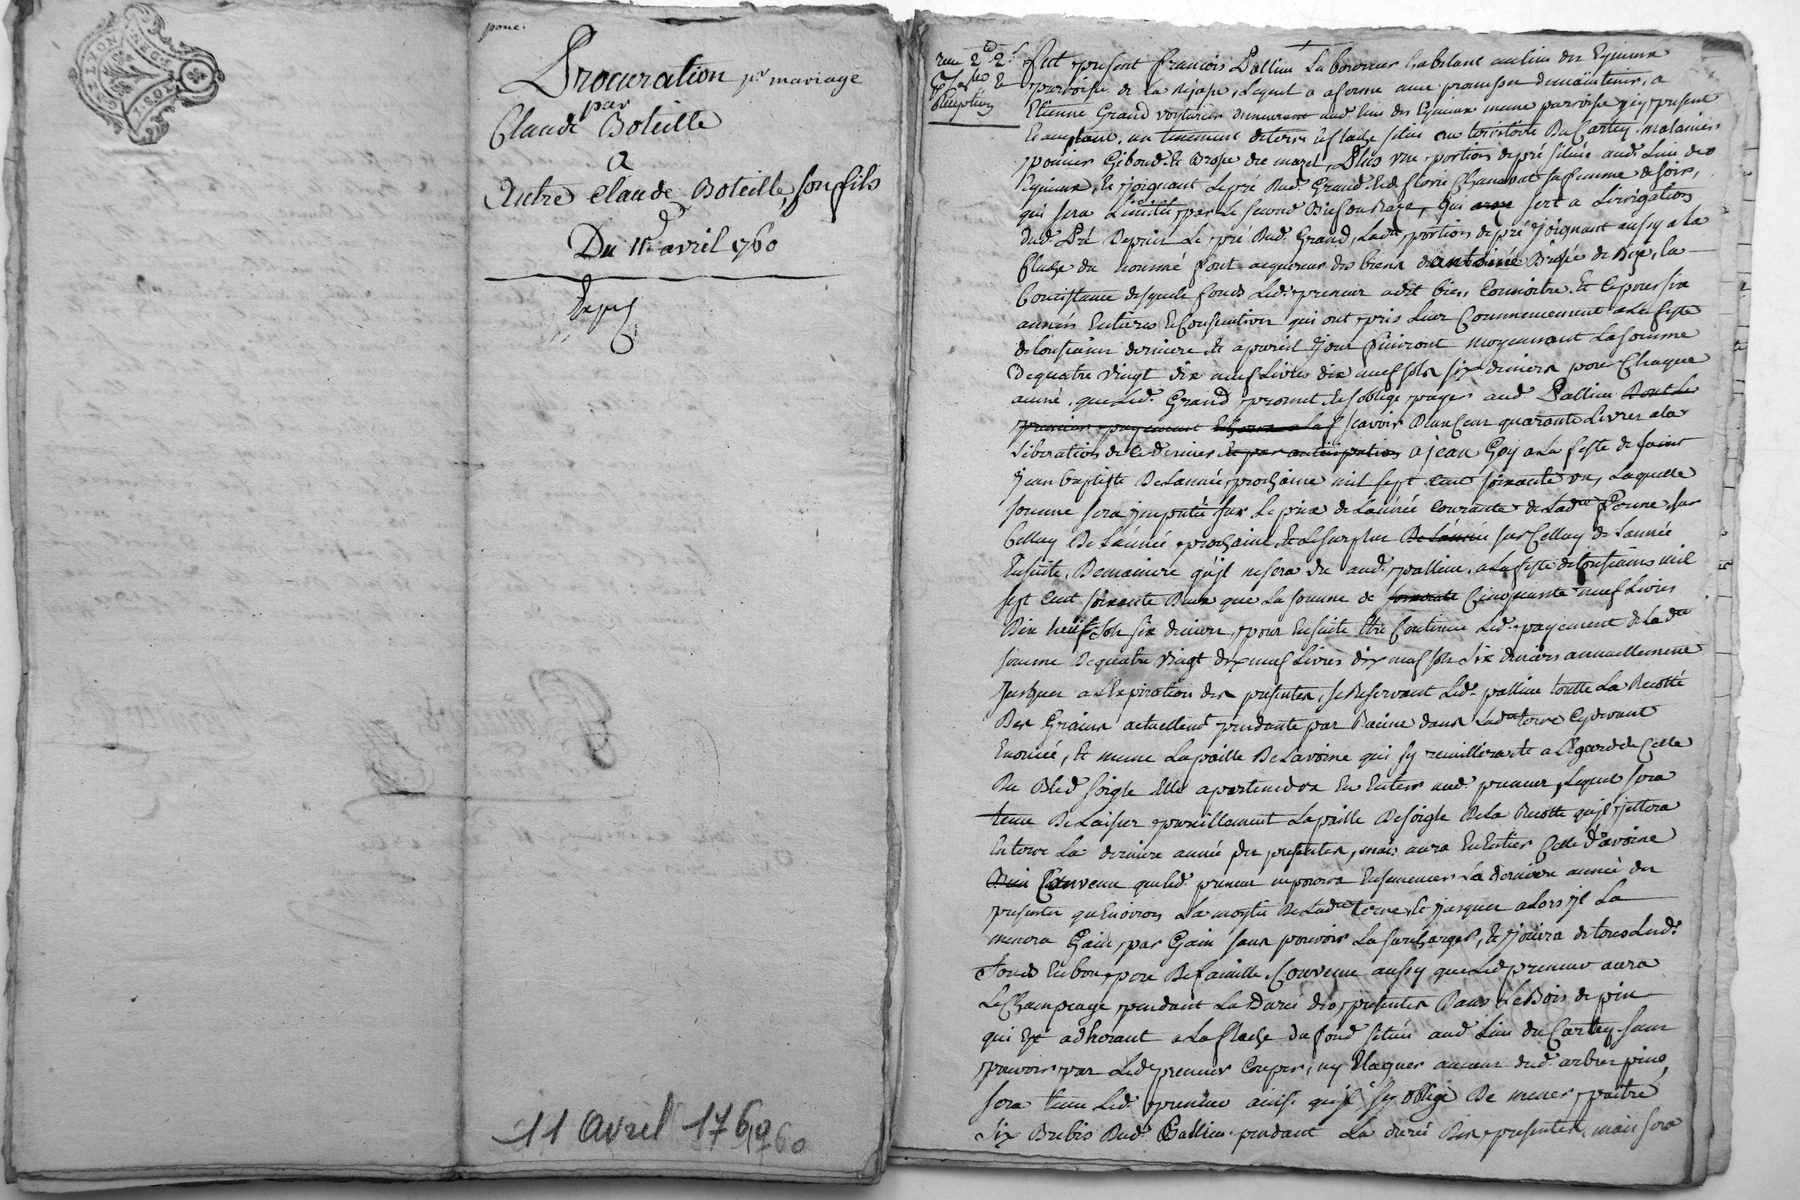 LYON
pour.
Procuration pr mariage
par
Claude Boteille
a
Autre Claude Boteille, son fils
Du 11e avril 1760
11 avril 1760
60
Fut present François Pallieu Laboureur habitant au lieu des
parroisse de La lequel a afermé avec promesse de maintenir, a
Etienne Grand voyturier demeurant aud. lieu des meme parroisse icy present
Et acceptant, un tenement de terre Et flache situé au territoire Du Cartey
Plus une portion de pré située aud. Lieu des
Et joignant Le pré Dud. Grand Et de Chanavat sa femme de soir,
qui sera par Le second Bief ou Raze, qui sert a L'irrigation
dud. Pré Depuis Le pré Dud. Grand, Lade portion de pré joignant aussy a la
flache du nommé acquereur des biens d'antoine de la
Consistance desquels fonds Led. preneur a dit bien Connoitre, Et Ce pour six
années Entieres Et Consecutives qui ont pris Leur Commencement a la feste
de toussaint derniere Et a pareil jour finiront moyennant La somme
De quatre vingt dix neuf Livres dix neuf sols six deniers pour Chaque
année, que Led. Grand promet Et s'oblige payer aud. Pallieu Dont Le
premier payement scavoir Deux Cent quarante Livres a la
Liberation de Ce Dernier Et par anticipation a jean Goy a La feste de saint
jean baptiste De L'année prochaine mil sept Cent soixante un, Laquelle
somme sera imputée sur Le prix de L'année Courante de Lade Ferme, sur
Celluy De L'année prochaine, Et Le surplus De L'année sur Celluy de L'année
Ensuite, De maniere qu'il ne sera du aud. pallieu, a La feste de toussaints mil
sept Cent soixante Deux que La somme de soixante Cinquante neuf Livres
Dix neuf sols six deniers, pour Ensuite Etre Continué Led. payement de Lade
somme De quatre vingt dix neuf Livres dix neuf sols Six deniers annuellement
Jusques a L'Expiration des presentes, se Reservant Led. pallieu toutte La Recolte
Des Grains actuellemt pendante par Racine dans Lade terre Cydevant
Enoncée, Et meme La paille De L'avoine qui s'y Et a L'Egard de Celle
Du Bled soigle Elle apartiendra En Entier aud. preneur, Lequel sera
tenu De Laisser pareillement La paille De soigle De La Recolte qu'il jettera
En terre La derniere année des presentes, mais aura En Entier Celle d'avoine
Convenu que Led. preneur ne pourra Ensemencer La derniere année des
presentes qu'Environ La moytié De Lade terre, Et jusques alors il La
menera Gain par Gain sans pouvoir La surcharger, Et jouira de tous Lesd.
fonds En bon pere De famille. Convenu aussy que Led. preneur aura
Le Champeage pendant La Durée des presentes Dans Le Bois de pin
qui Est adherant a La flache du fond situé aud. Lieu du Cartey sans
pouvoir par Led. preneur Couper, ny Elaguer aucun dud. arbres pins,
sera tenu Led. preneur ainsi qu'il s'y oblige De mener paitre
Six Brebis Dud. Pallieu pendant La durée Des presentes, mais sera